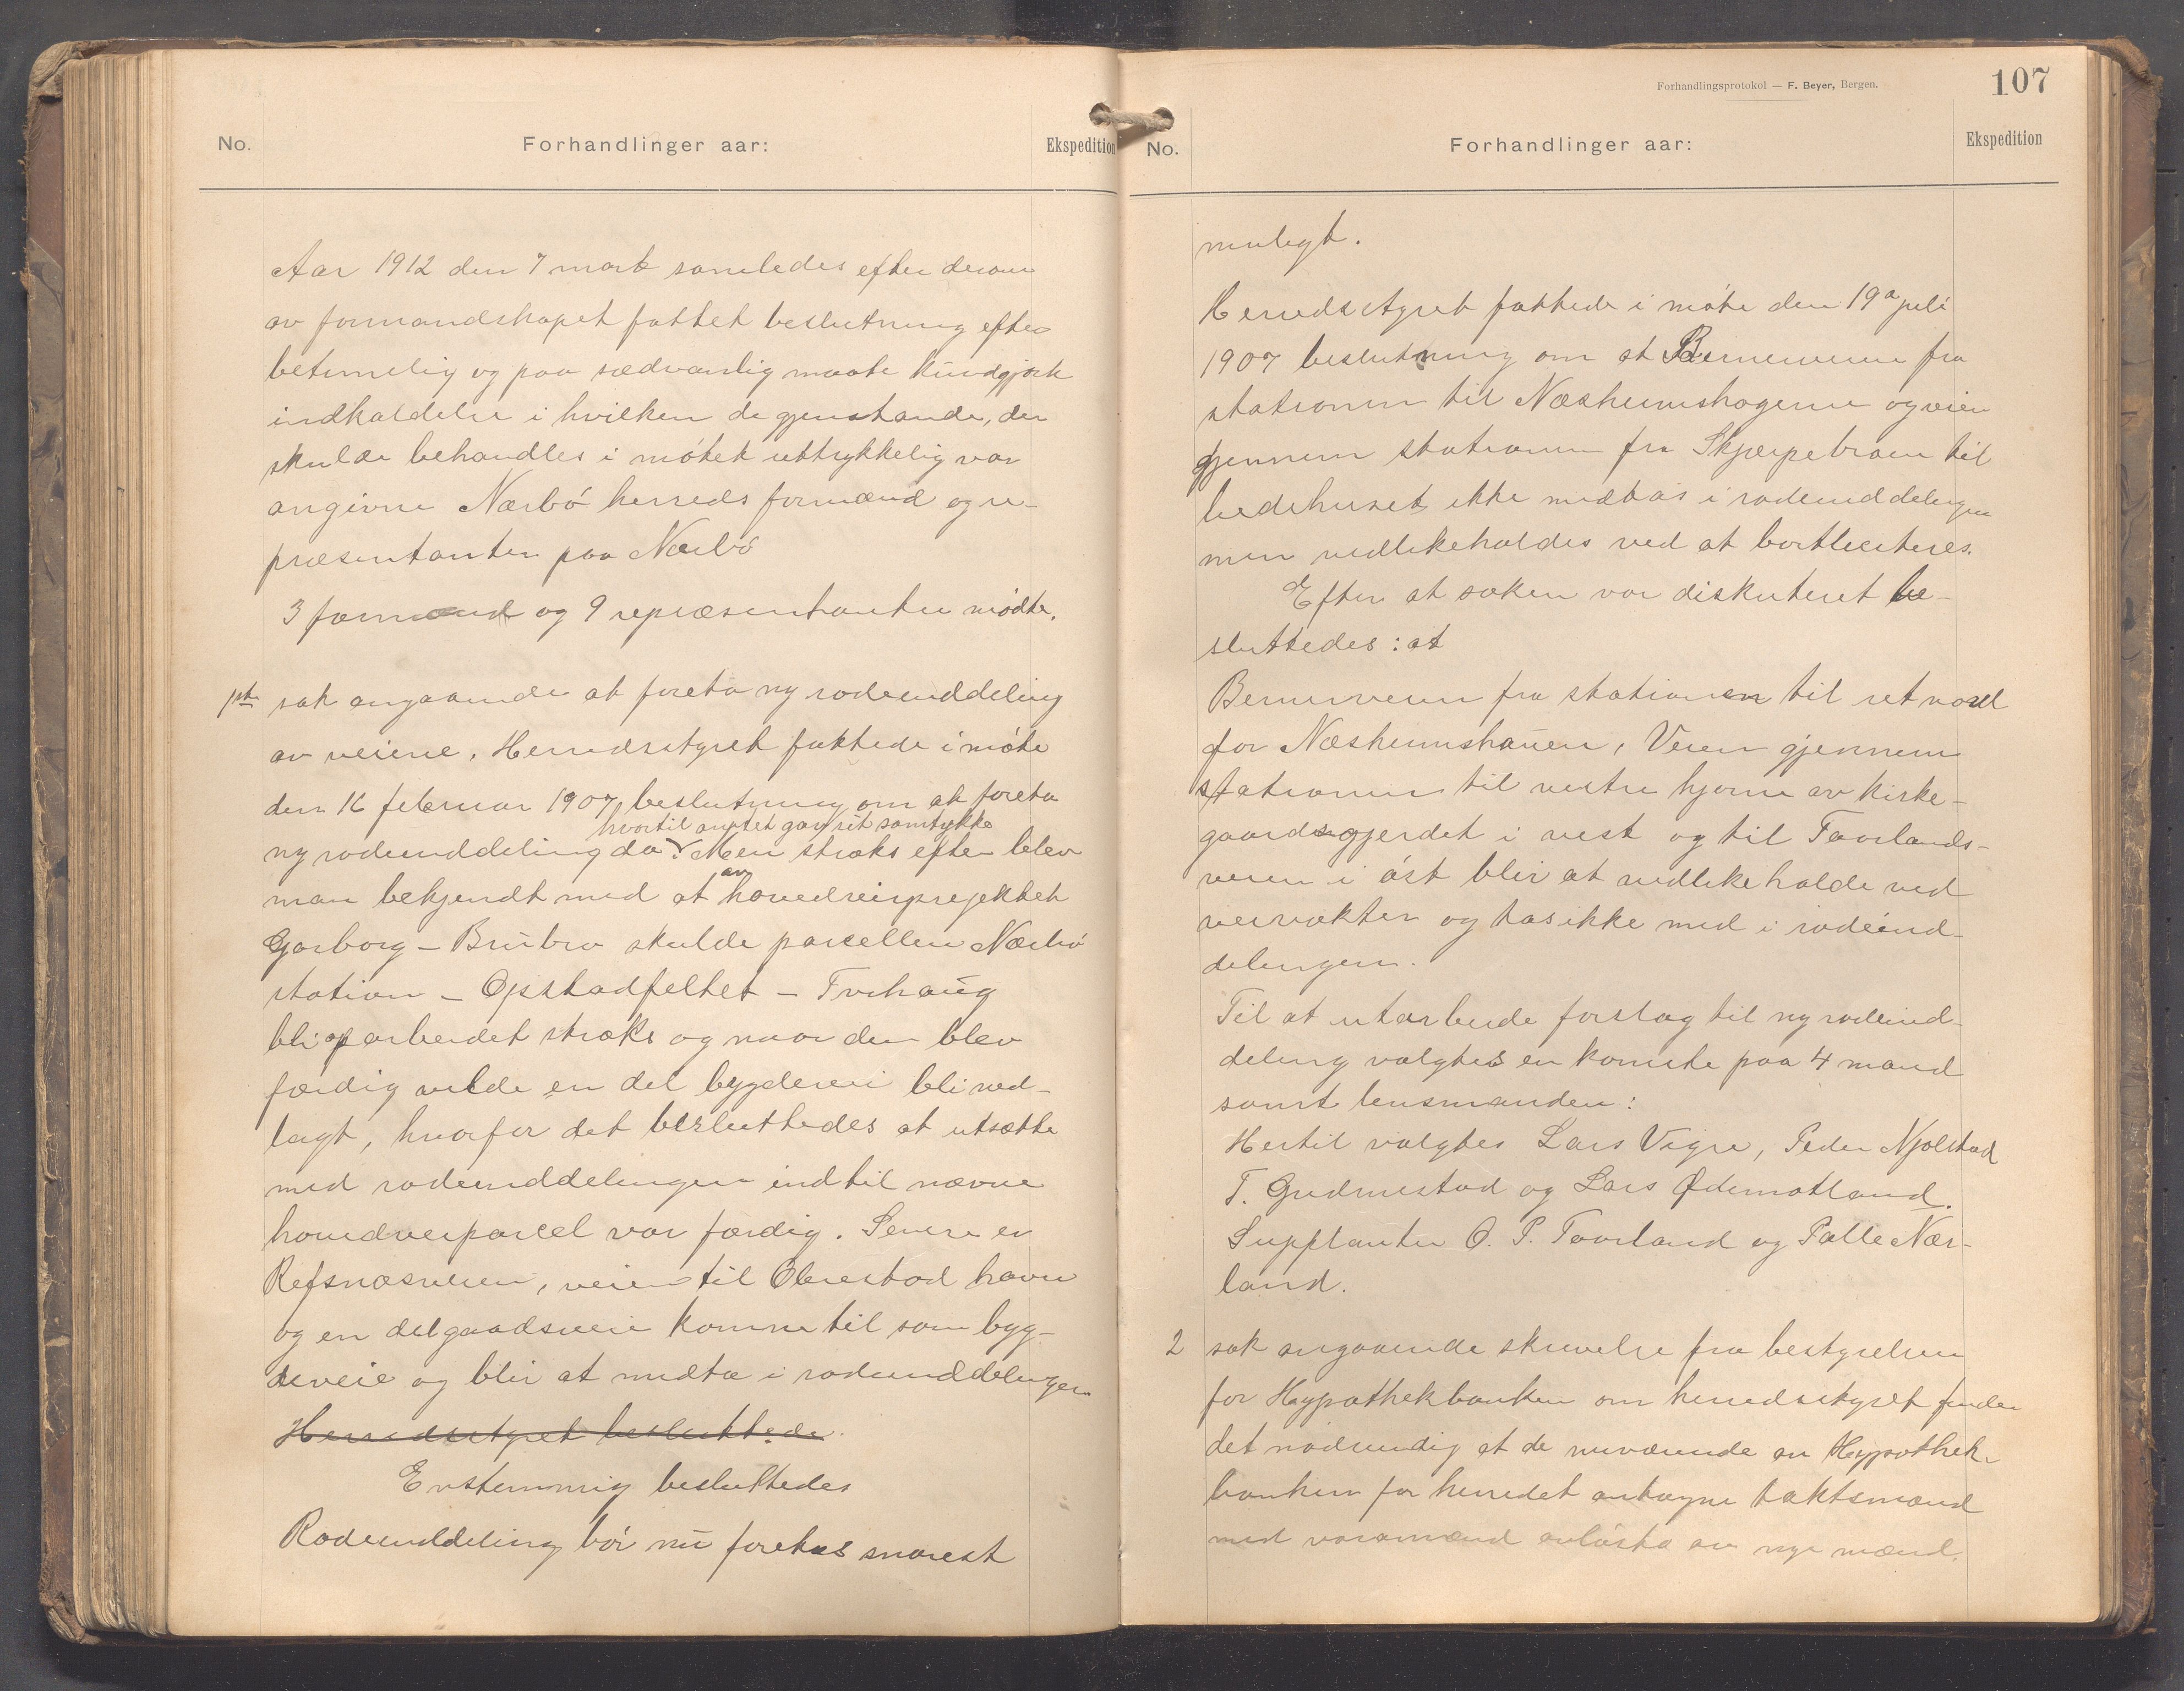 No.
Forhandlinger aar:
Ekspedition
Aar 1912 den 7 marts samledes efter derom
av formandskapet fattet beslutning efter
betimelig og paa sædvanlig maate kundgjort
indkaldelse i hvilken de gjenstande, der
skulde behandles i møtet uttrykkelig var
angivne Nærbø herreds formænd og re-
præsentanter paa Nærbø
3 formænd og 9 repræsentanter mødte.
1ste sak angaaende at foreta ny rodeinddeling
av veiene. Herredsstyret fattede i møte
den 16 februar 1907 beslutning om at foreta
hvortil amtet gav sit samtykke
ny rodeinddeling da. Men straks efter blev
man bekjendt med at av hovedveiprojektet
Garborg - Brubro skulde parcellen Nærbø
station - Opstadfeltet - Tvihaug
bli oparbeidet straks og naar den blev
færdig vilde en del bygdevei bli ned-
lagt, hvorfor det besluttedes at utsætte
med rodeinddelingen indtil nævne
hovedveiparcel var færdig. Senere er
Refsnæsveien, veien til Obrestad havn
og en del gaardsveie komne til som byg-
deveie og blir at medta i rodeinddelingen
Herredsstyret besluttede
Enstemmig besluttedes
Rodeinddeling bør nu foretas snarest
Forhandlingsprotokol — F. Beyer, Bergen.
107
No.
Forhandlinger aar:
Ekspedition
muligt.
Herredsstyret fattede i møte den 19de juli
1907 beslutning om at Bernerveien fra
stationen til Næsheimshagerne og veien
gjennem stationen fra Skjærpebroen til
bedehuset ikke medtas i rodeinddelingen
men vedlikeholdes ved at bortliciteres.
Efter at saken var diskuteret be-
sluttedes: at
Bernerveien fra stationen til ret nord
for Næsheimshauen, Veien gjennem
stationen til vestre hjørne av kirke-
gaardsgjerdet i vest og til Taarlands-
veien i øst blir at vedlikeholde ved
veivokter og tas ikke med i rodeind-
delingen.
Til at utarbeide forslag til ny rodeind-
deling valgtes en komite paa 4 mand
samt lensmanden:
Hertil valgtes Lars Vigre, Peder Njølstad
T. Gudmestad og Lars Ødemotland.
Supplanter O. P. Taarland og Palle Nær-
land.
2 sak angaaende skrivelse fra bestyrelsen
for Hypothekbanken om herredsstyret finder
det nødvendig at de nuværende av Hypothek-
banken for herredet antagne takstmænd
med varamænd avløste av nye mænd.